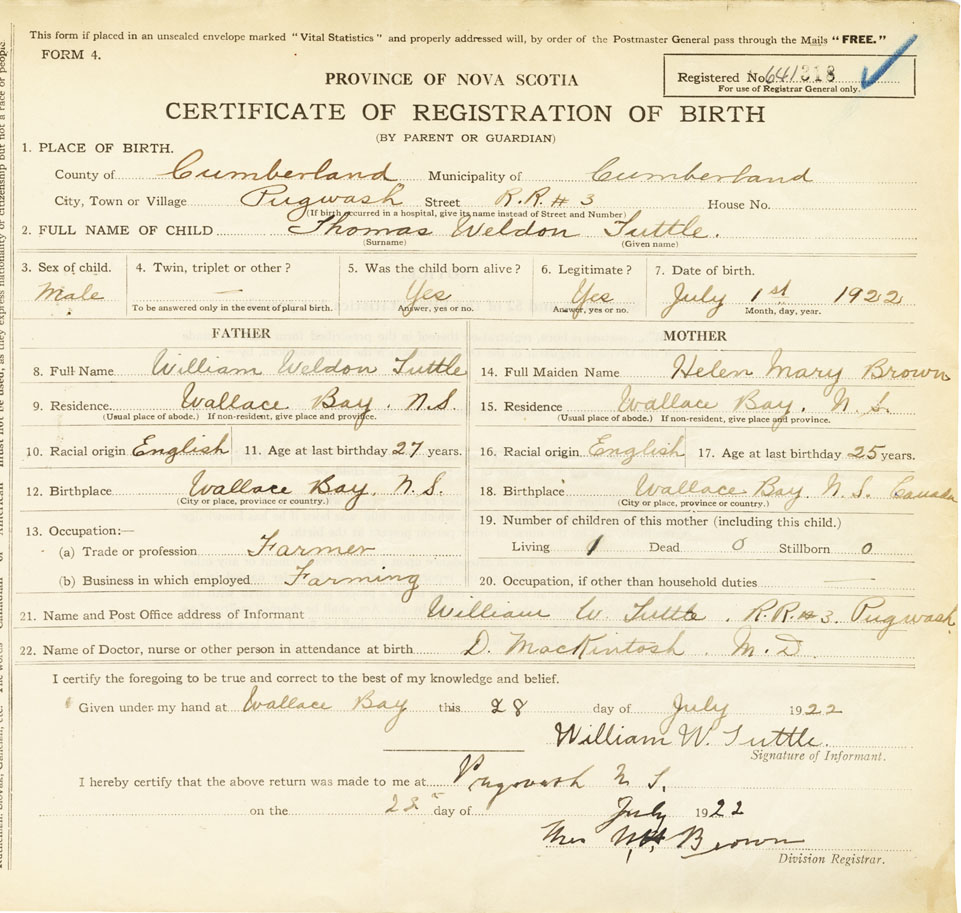 This form if placed in an unsealed envelope marked "Vital Statistics" and properly addressed will, by order of the Postmaster General pass through the Mails "FREE."
FORM 4.
PROVINCE OF NOVA SCOTIA
Registered No. 641318
For use of Registrar General only.
CERTIFICATE OF REGISTRATION OF BIRTH
(BY PARENT OR GUARDIAN)
1. PLACE OF BIRTH.
County of Cumberland Municipality of Cumberland
City, Town or Village Pugwash Street R.R.# 3 House No.
(If birth occurred in a hospital, give its name instead of Street and Number)
2. FULL NAME OF CHILD Thomas Weldon Tuttle.
(Surname) (Given name)
3. Sex of child. 4. Twin, triplet or other? 5. Was the child born alive? 6. Legitimate? 7. Date of birth.
Male — Yes Yes July 1st 1922
To be answered only in the event of plural birth. Answer, yes or no. Answer, yes or no. Month, day, year.
FATHER MOTHER
8. Full Name William Weldon Tuttle 14. Full Maiden Name Helen Mary Brown
9. Residence Wallace Bay. N.S. 15. Residence Wallace Bay. N. S.
(Usual place of abode.) If non-resident, give place and province. (Usual place of abode.) If non-resident, give place and province.
10. Racial origin English 11. Age at last birthday 27 years. 16. Racial origin English 17. Age at last birthday 25 years.
12. Birthplace Wallace Bay. N.S. 18. Birthplace Wallace Bay. N.S. Canada
(City or place, province or country.) (City or place, province or country.)
13. Occupation:— 19. Number of children of this mother (including this child.)
(a) Trade or profession Farmer Living 1 Dead 0 Stillborn 0
(b) Business in which employed Farming 20. Occupation, if other than household duties —
21. Name and Post Office address of Informant William W. Tuttle. R.R.# 3. Pugwash
22. Name of Doctor, nurse or other person in attendance at birth D. MacKintosh. M.D.
I certify the foregoing to be true and correct to the best of my knowledge and belief.
Given under my hand at Wallace Bay this 28 day of July 1922
William W. Tuttle.
Signature of Informant.
I hereby certify that the above return was made to me at Pugwash N S.
on the 28 day of July 1922
Brown
Division Registrar.